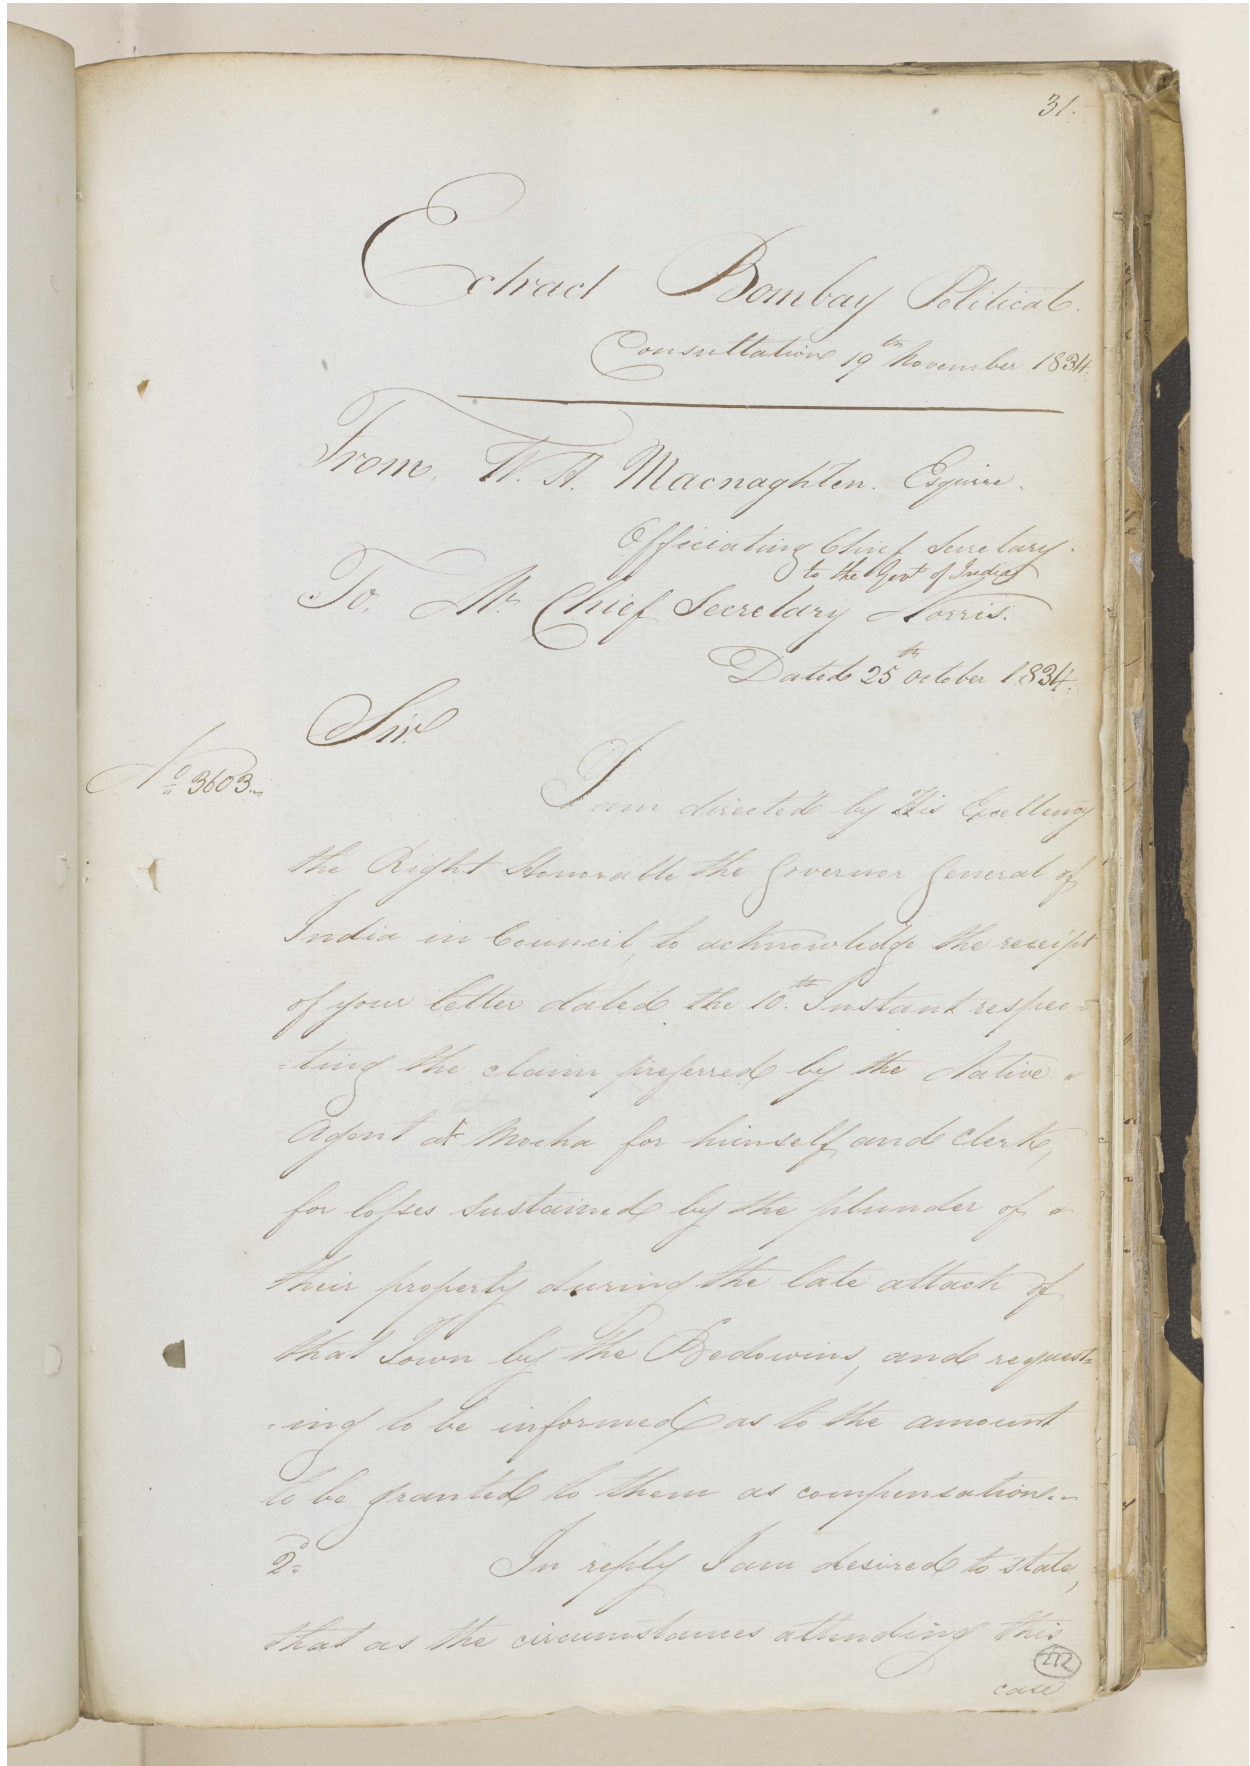 31.
Extract Bombay Political.
Consultation 19th November 1834.
From. W. H. Macnaghten. Esquire.
Officiating Chief Secretary.
to the Govt of India
To, Mr Chief Secretary Norris.
Dated 25th October 1834.
Sir.
No 3603.
I am directed by His Excellency
the Right Honorable the Governor General of
India in Council, to acknowledge the receipt
of your letter dated the 10th. Instant respec=
=ting the claim preferred by the Native
Agent at Mocha for himself and clerk,
for losses sustained by the plunder of
their property during the late attack of
that Town by the Bedowins, and request=
=ing to be informed as to the amount
to be granted to them as compensation.
2. In reply I am desired to state,
that as the circumstances attending this
222
case